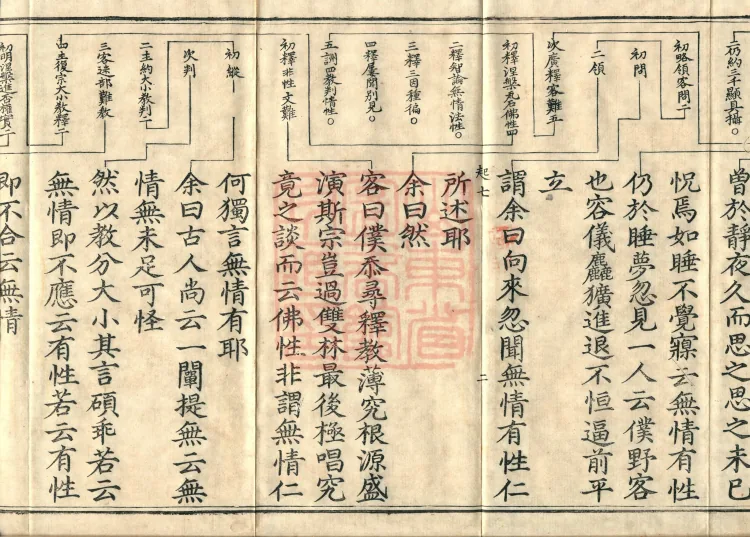 仍約三不顯具攝○
初略領客問二
初問
二領
次廣釋客難五
初釋涅槃名佛性四
二釋智論無情法性○
三釋三因種徧○
四釋屢聞別見○
五調四教判情性○
初釋非性文難
初縱
次判
二主約大小教判二
三客迷部難教
四主復宗大小教釋二
初明涅槃進否權實二
曾於靜夜久而思之思之未已
怳焉如睡不覺寱云無情有性
仍於睡夢忽見一人云僕野客
也容儀麤獷進退不恒逼前平
立
謂余曰向來忽聞無情有性仁
起七
二
所述耶
余曰然
客曰僕忝尋釋教薄究根源盛
演斯宗豈過雙林最後極唱究
竟之談而云佛性非謂無情仁
何獨言無情有耶
余曰古人尚云一闡提無云無
情無未足可怪
然以教分大小其言碩乖若云
無情即不應云有性若云有性
即不合云無情